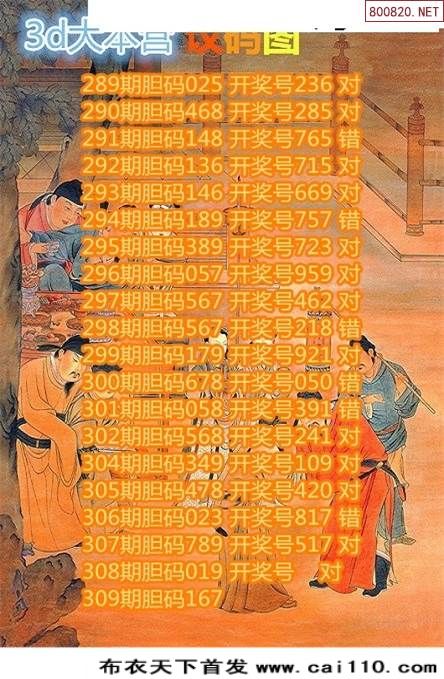 800820.NET
3d大本营 图
289期胆码025 开奖号236 对
290期胆码468 开奖号285 对
291期胆码148 开奖号765 错
292期胆码136 开奖号715 对
293期胆码146 开奖号669 对
294期胆码189 开奖号757 错
295期胆码389 开奖号723 对
296期胆码057 开奖号959 对
297期胆码567 开奖号462 对
298期胆码567 开奖号218 错
299期胆码179 开奖号921 对
300期胆码678 开奖号050 错
301期胆码058 开奖号391 错
302期胆码568 开奖号241 对
304期胆码349 开奖号109 对
305期胆码478 开奖号420 对
306期胆码023 开奖号817 错
307期胆码789 开奖号517 对
308期胆码019 开奖号 对
309期胆码167
布衣天下首发 www.cai110.com